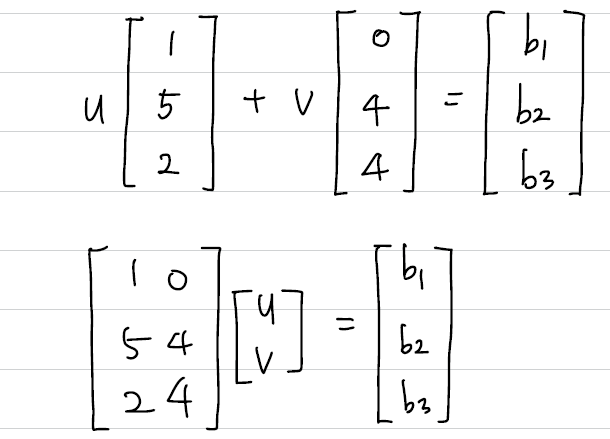 u [1 5 2] + v [0 4 4] = [b1 b2 b3]
[1 0 5 4 2 4] [u v] = [b1 b2 b3]